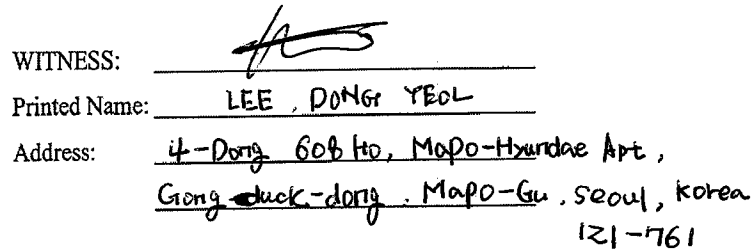 WITNESS:
Printed Name: LEE, DONG YEOL
Address: 4-Dong 608 Ho, Mapo-Hyundae Apt,
Gong-duck-dong. Mapo-Gu, Seoul, Korea
121-761